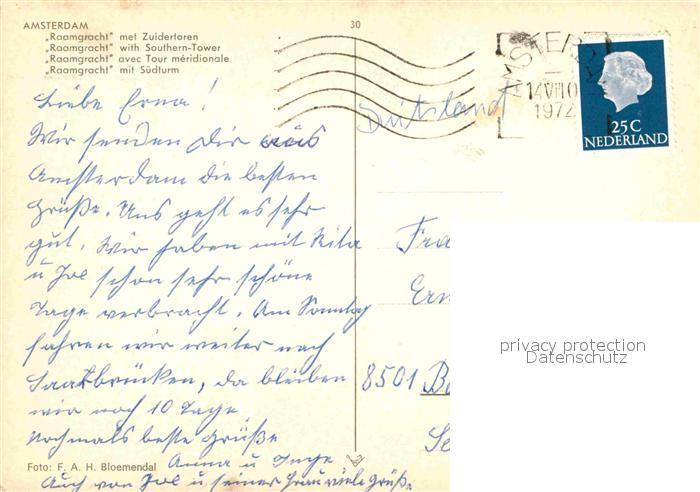 AMSTERDAM
„Raamgracht" met Zuidertoren
„Raamgracht" with Southern-Tower
„Raamgracht" avec Tour méridionale
„Raamgracht" mit Südturm
30
AMSTERDA
14 VIII 0
1972
25 C
NEDERLAND
Deutsland
Liebe Erna!
Wir senden Dir aus
Amsterdam die besten
Grüße. Uns geht es sehr
gut. Wir haben mit Rita
u Joe schon sehr schöne
Tage verbracht. Am Sonntag
fahren wir weiter nach
Saarbrücken, da bleiben
wir noch 10 Tage
Nochmals beste Grüße
Anna u Inge
Auch von Joe u seiner Frau viele Grüße.
Fra
Ern
8501 B
privacy protection
Datenschutz
Foto: F. A. H. Bloemendal